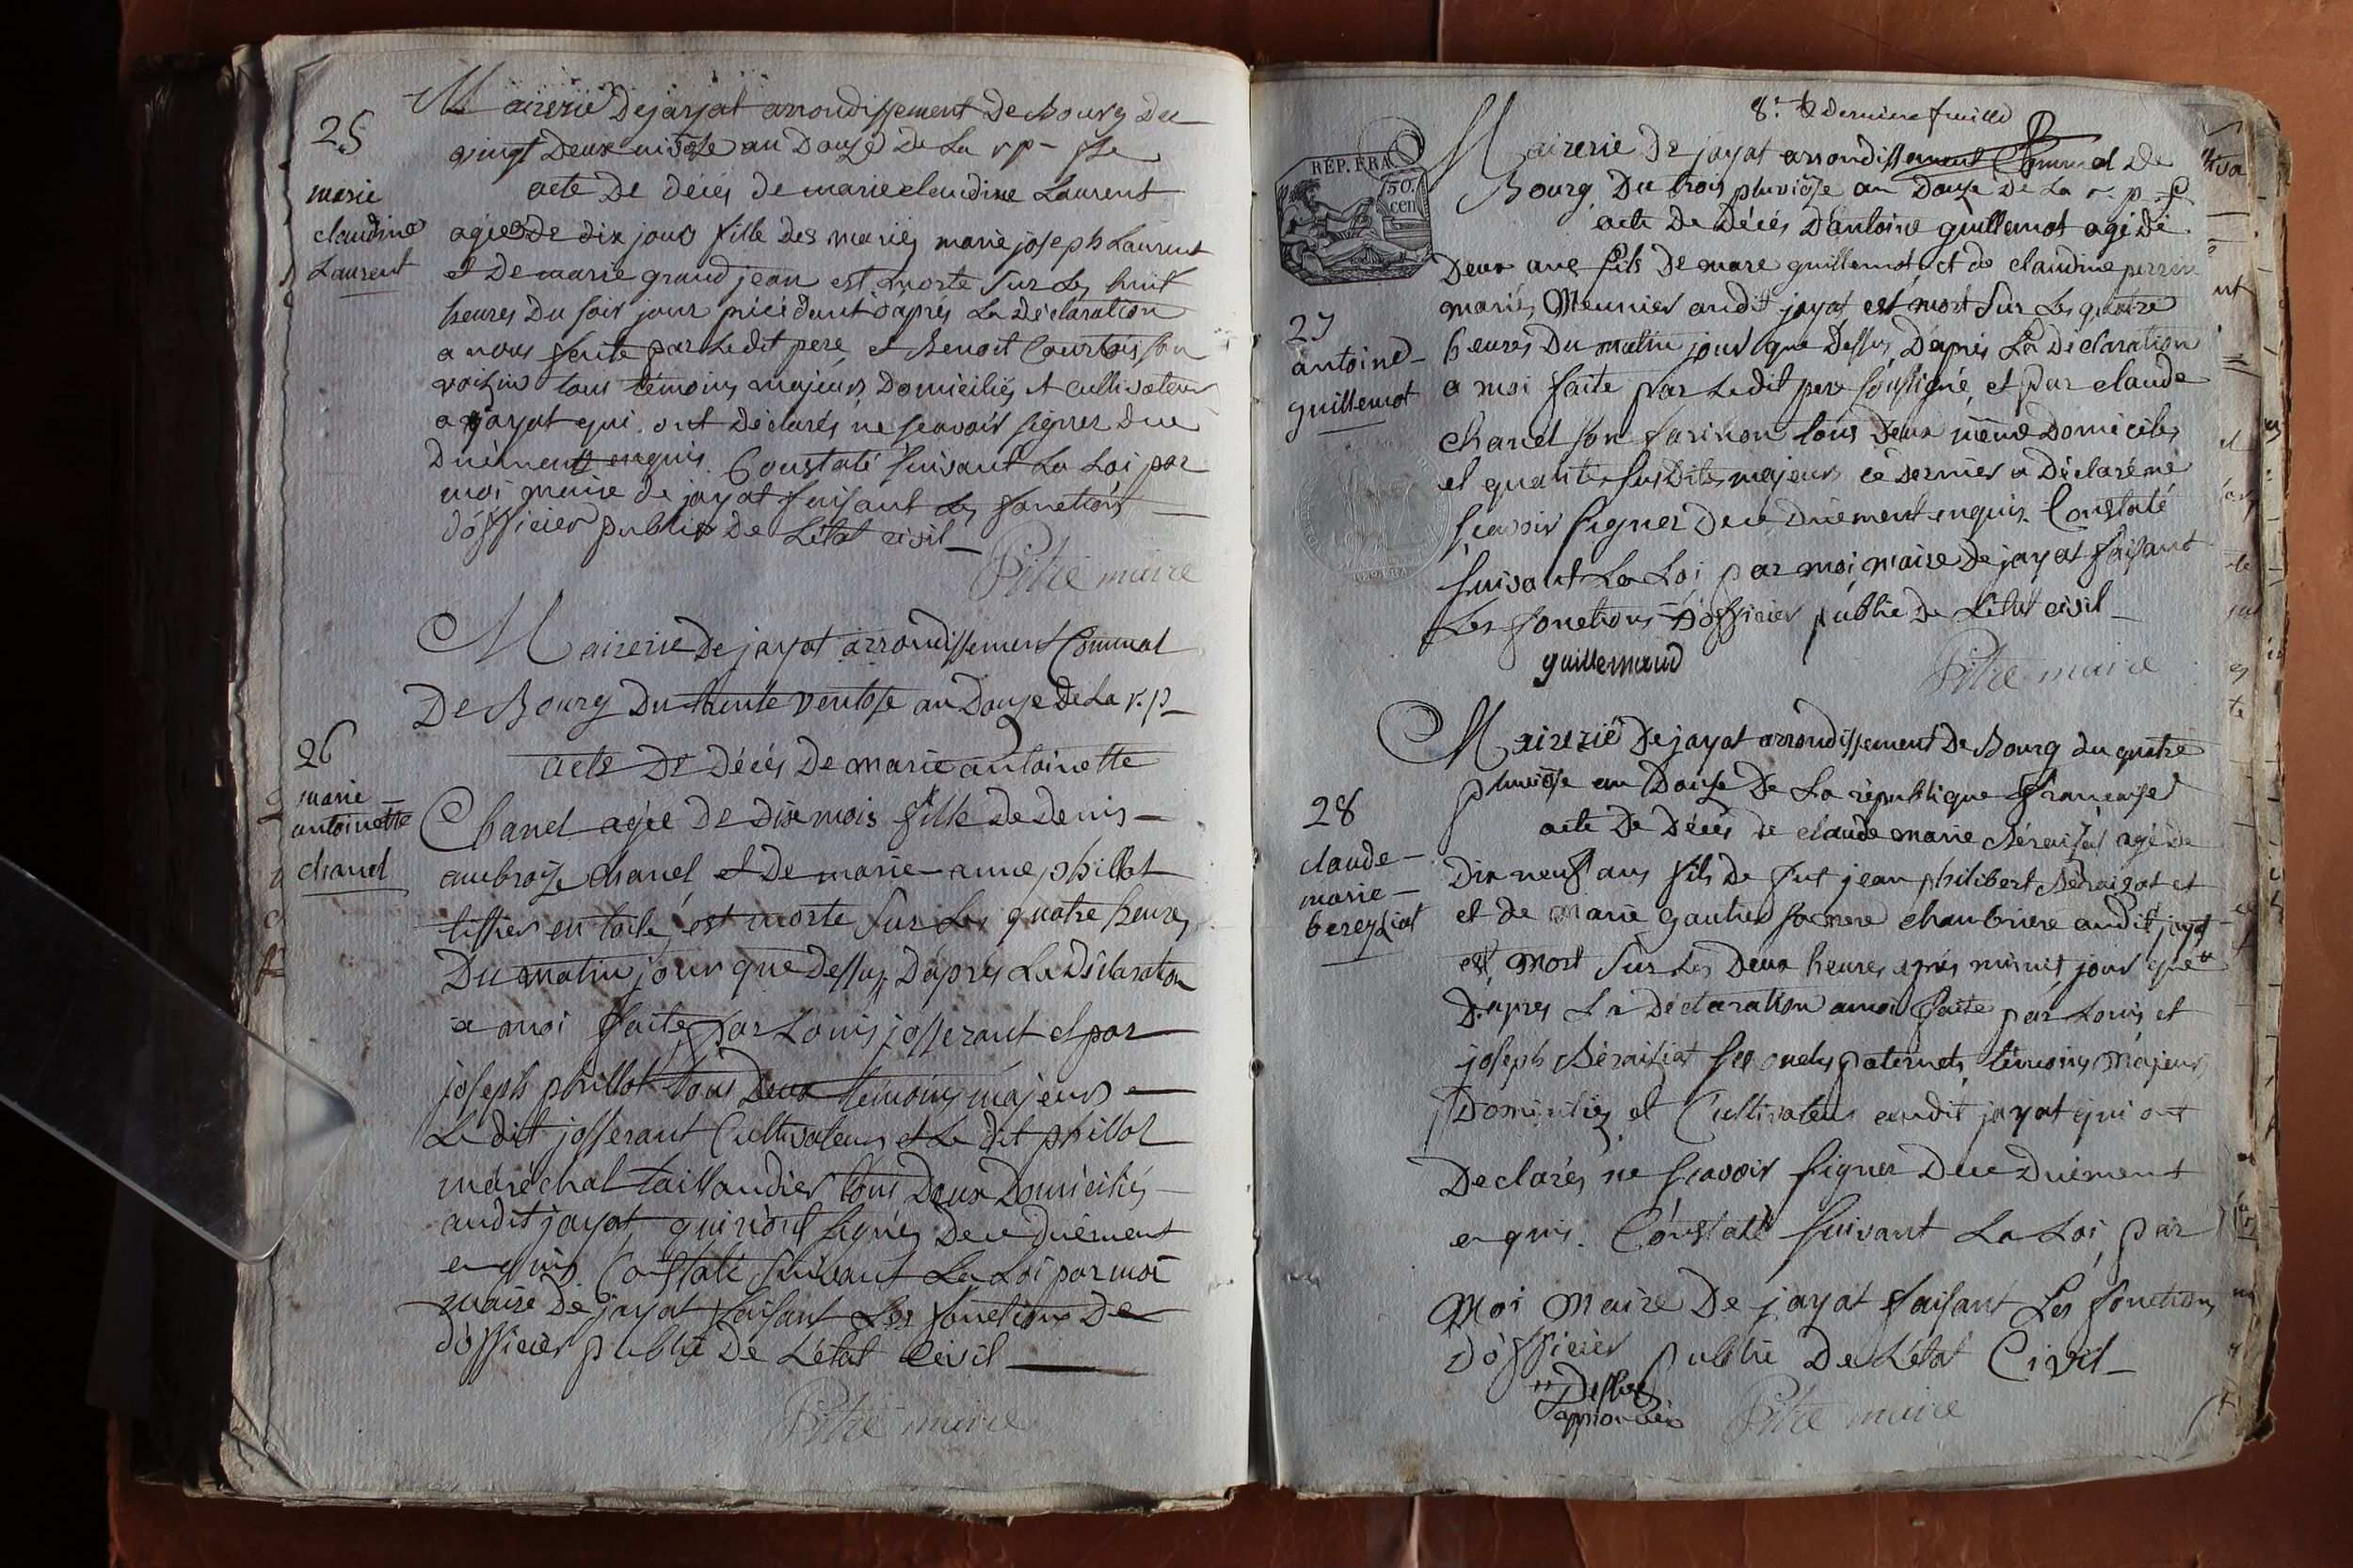 Mairerie De jayat arrondissement De Bourg Du
vingt Deux nivôse an Douze De La rp- fse
25
acte De décès de marie claudine Laurent
marie
claudine
Laurent
agée de dix jours fille des mariés marie joseph Laurent
et De marie grand jean est morte sur Les huit
heures Du soir jour précédent d'après La Déclaration
a nous faite par Ledit pere, et Benoit Courtois son
voisin tous témoins majeurs Domiciliés et cultivateurs
a jayat qui ont déclarés ne scavoir signer Dece
Duëment enquis. Constaté suivant La Loi par
moi maire de jayat faisant Les fonctions
d'officier public De L'état civil
Pitre maire
Mairerie De jayat arrondissement Communal
De Bourg Du trente ventose an Douze De La r.p
26
acte De Décès De marie antoinette
marie
antoinette
chanel
Chanel agée De Dix mois fille De Denis
ambroize chanel et De marie anne phillot
tissier en toile, est morte sur Les quatre heures
Du matin jour que Dessus, D'après La Déclaration
a moi faite par Louis josserant et par
joseph phillot tous Deux temoins majeurs
Le dit josserant Cultivateur et Le dit phillot
maréchal taillandier tous Deux Domiciliés
audit jayat, qui n'ont signés Dece duëment
enquis. Constaté suivant La Loi par moi
maire De jayat faisant Les fonctions De
d'officier public De L'état Civil
Pitre maire
8e. & Derniere feuille
REP. FRA.
50.
cen
Mairerie De jayat arrondissement Communal De
Bourg. Du trois pluviôse an Douze De La r. p. f.
acte De Décès D'antoine guillemot agé De
Deux ans fils De marc guillemot et de claudine perrin
mariés Meunier audit jayat est mort sur Les quatre
27
antoine
guillemot
heures Du matin jour que Dessus, D'après La Declaration
a moi faite par Ledit pere soussigné, et par claude
chanel son farinon tous Deux même Domiciles
et qualités susdites majeurs ce dernier a Déclaré ne
scavoir signer Dece Duëment enquis. Constaté
suivant La Loi par moi, maire De jayat faisant
Les fonctions D'officier public De L'état civil
guillemaud
Pitre maire
Mairerie De jayat arrondissement De Bourg du quatre
pluviôse an Douze De La république française
28
claude
marie
bereyziat
acte De Décès de claude marie Béraiziat agé De
Dix neuf ans fils De fut jean philibert Béraiziat et
et de Marie gautier sa mere chambriere audit jayat
est mort sur Les Deux heures après minuit, jour que "
D'après La Déclaration a moi faite par Louis et
joseph Béraiziat ses oncles paternels, témoins Majeurs
Domiciliés et Cultivateurs audit jayat qui ont
Declarés ne scavoir signer Dece Duëment
enquis. Constaté suivant La Loi, par
Moi Maire De jayat faisant Les fonctions
D'officier public De L'état Civil
" Dessus
approuvé
Pitre maire